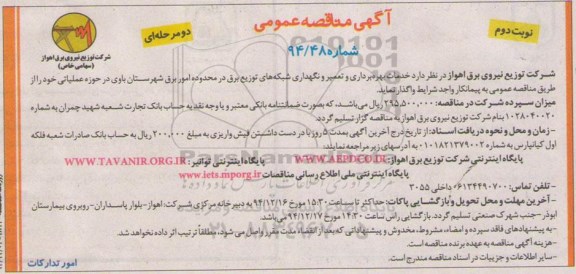 آگهی مناقصه عمومی
نوبت دوم
دو مرحله‌ای
شماره ۹۴/۴۸
شرکت توزیع نیروی برق اهواز
(سهامی خاص)
شرکت توزیع نیروی برق اهواز در نظر دارد خدمات بهره‌برداری و تعمیر و نگهداری شبکه‌های توزیع برق در محدوده امور برق شهرستان باوی در حوزه عملیاتی خود را از
طریق مناقصه عمومی به پیمانکار واجد شرایط واگذار نماید.
میزان سپرده شرکت در مناقصه: ۲۹۵,۵۰۰,۰۰۰ ریال می‌باشد، که بصورت ضمانتنامه بانکی معتبر و یا وجه نقد به حساب بانک تجارت شعبه شهید چمران به شماره
۱۰۲۸۰۴۰۰۲۰ بنام شرکت توزیع نیروی برق اهواز به مناقصه گزار تسلیم گردد.
- زمان و محل و نحوه دریافت اسناد: از تاریخ درج آخرین آگهی بمدت ۵ روز با در دست داشتن فیش واریزی به مبلغ ۲۰۰.۰۰۰ ریال به حساب بانک صادرات شعبه فلکه
اول کیانپارس به شماره ۰۱۰۱۸۲۱۳۷۹۰۰۲ به آدرسهای زیر مراجعه نمایند.
پایگاه اینترنتی شرکت توزیع برق اهواز: WWW.AEPDC.IR پایگاه اینترنتی توانیر: WWW.TAVANIR.ORG.IR
پایگاه اینترنتی ملی اطلاع رسانی مناقصات www.iets.mporg.ir
- تلفن تماس: ۰۶۱۳۴۴۹۰۷۰۰ داخلی ۳۰۵۵
- آخرین مهلت و محل تحویل و بازگشایی پاکات: حداکثر تا ساعت ۱۵:۳۰ مورخ ۹۴/۱۲/۱۶ به دبیرخانه مرکزی شرکت: اهواز- بلوار پاسداران- روبروی بیمارستان
ابوذر- جنب شهرک صنعتی تسلیم گردد. بازگشایی راس ساعت ۱۴:۳۰ مورخ ۹۴/۱۲/۱۷ می‌باشد.
- به پیشنهادهای فاقد سپرده و امضاء، مشروط، مخدوش و پیشنهاداتی که بعد از انقضاء مدت مقرر واصل می شود، مطلقاً ترتیب اثر داده نخواهد شد.
- هزینه آگهی مناقصه به عهده برنده مناقصه است.
- سایر اطلاعات و جزییات در اسناد مناقصه مندرج است.
امور تدارکات